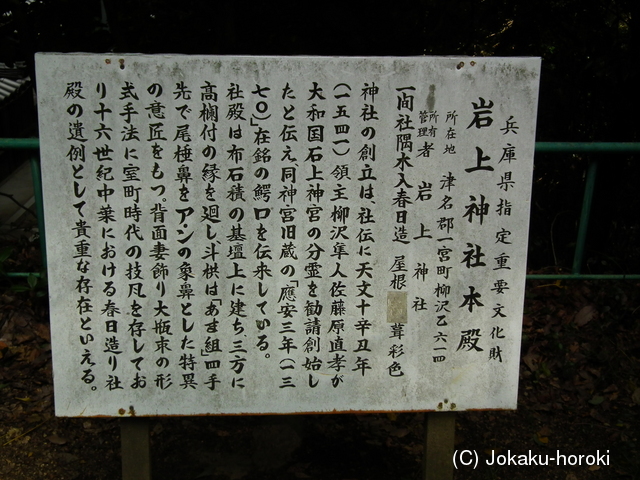 兵庫県指定重要文化財
岩上神社本殿
所在地 津名郡一宮町柳沢乙六一四
所有
管理者 岩上神社
一間社隅木入春日造 屋根 葺彩色
神社の創立は、社伝に天文十辛丑年
(一五四一)領主柳沢隼人佐藤原直孝が
大和国石上神宮の分霊を勧請創始し
たと伝え同神宮旧蔵の「應安三年(一三
七〇)」在銘の鰐口を伝来している。
社殿は布石積の基壇上に建ち、三方に
高欄付の縁を廻し、斗栱は「あま組」四手
先で尾棰鼻をア、ンの象鼻とした特異
の意匠をもつ。背面妻飾り大瓶束の形
式手法に室町時代の技風を存してお
り十六世紀中葉における春日造り社
殿の遺例として貴重な存在といえる。
(C) Jokaku-horoki